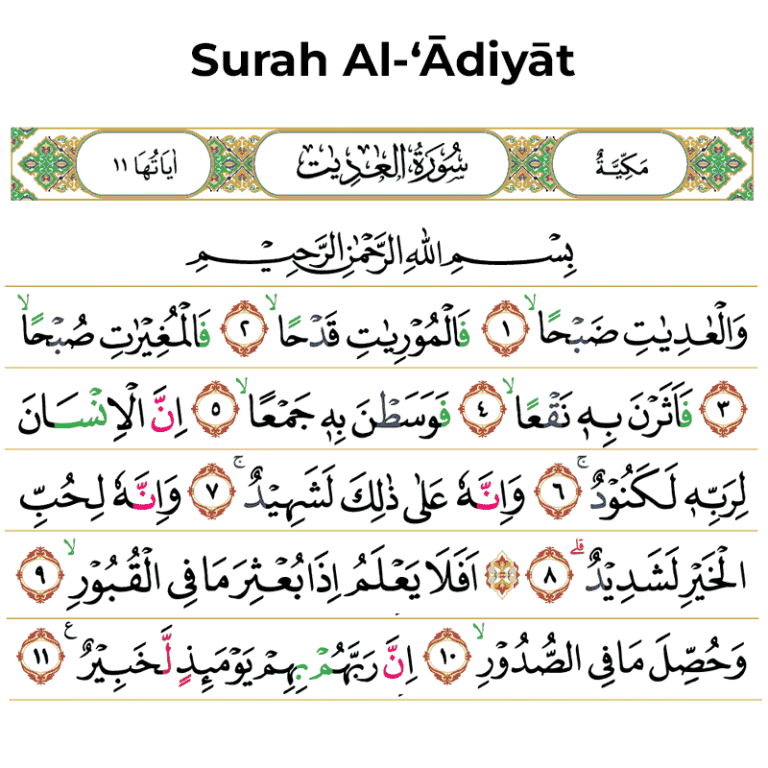 Surah Al-‘Ādiyāt
مَكِّيَّةٌ سُوْرَةُ الْعٰدِيٰتِ اٰيَاتُهَا ١١
بِسْمِ اللّٰهِ الرَّحْمٰنِ الرَّحِيْمِ
وَالْعٰدِيٰتِ ضَبْحًاۙ ١ فَالْمُوْرِيٰتِ قَدْحًاۙ ٢ فَالْمُغِيْرٰتِ صُبْحًاۙ
٣ فَاَثَرْنَ بِهٖ نَقْعًاۙ ٤ فَوَسَطْنَ بِهٖ جَمْعًاۙ ٥ اِنَّ الْاِنْسَانَ
لِرَبِّهٖ لَكَنُوْدٌۚ ٦ وَاِنَّهٗ عَلٰى ذٰلِكَ لَشَهِيْدٌۚ ٧ وَاِنَّهٗ لِحُبِّ
الْخَيْرِ لَشَدِيْدٌۗ ٨ ۞ اَفَلَا يَعْلَمُ اِذَا بُعْثِرَ مَا فِى الْقُبُوْرِۙ ٩
وَحُصِّلَ مَا فِى الصُّدُوْرِۙ ١٠ اِنَّ رَبَّهُمْ بِهِمْ يَوْمَىِٕذٍ لَّخَبِيْرٌ ࣖ ١١